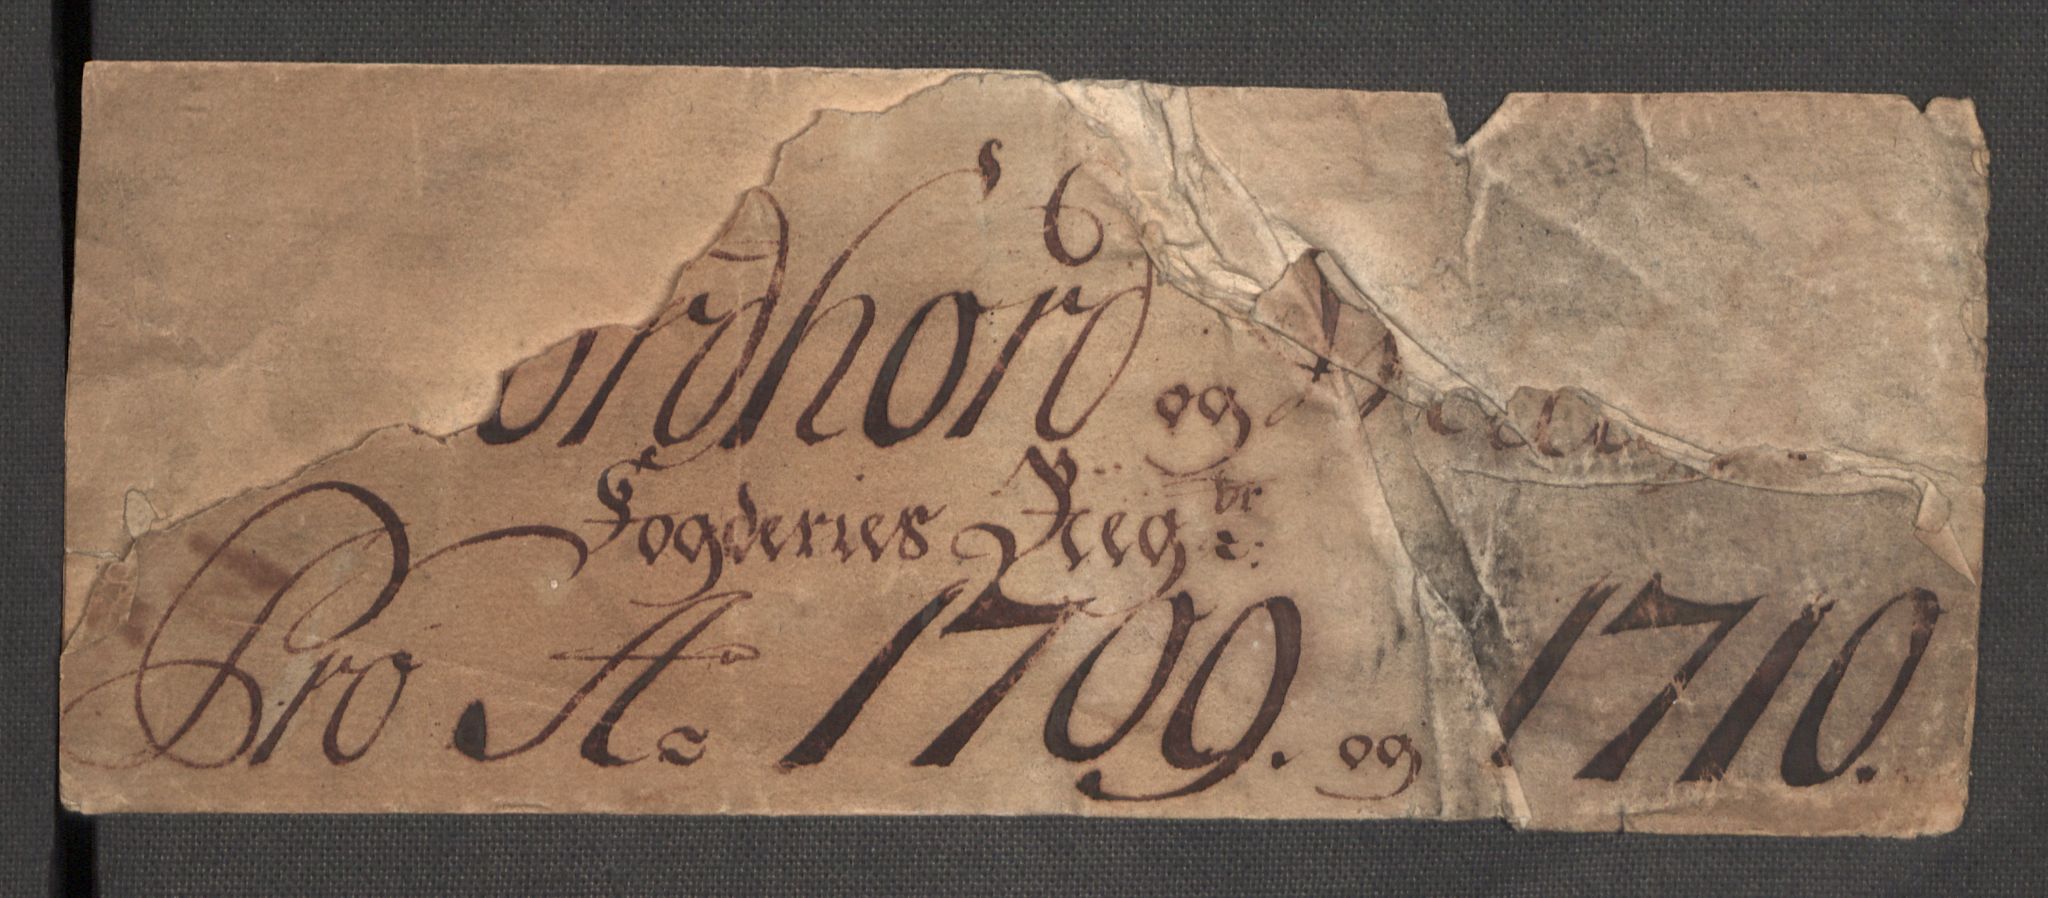 ordhord og
Fogderies Reg br
Pro Ao 1709. og 1710.